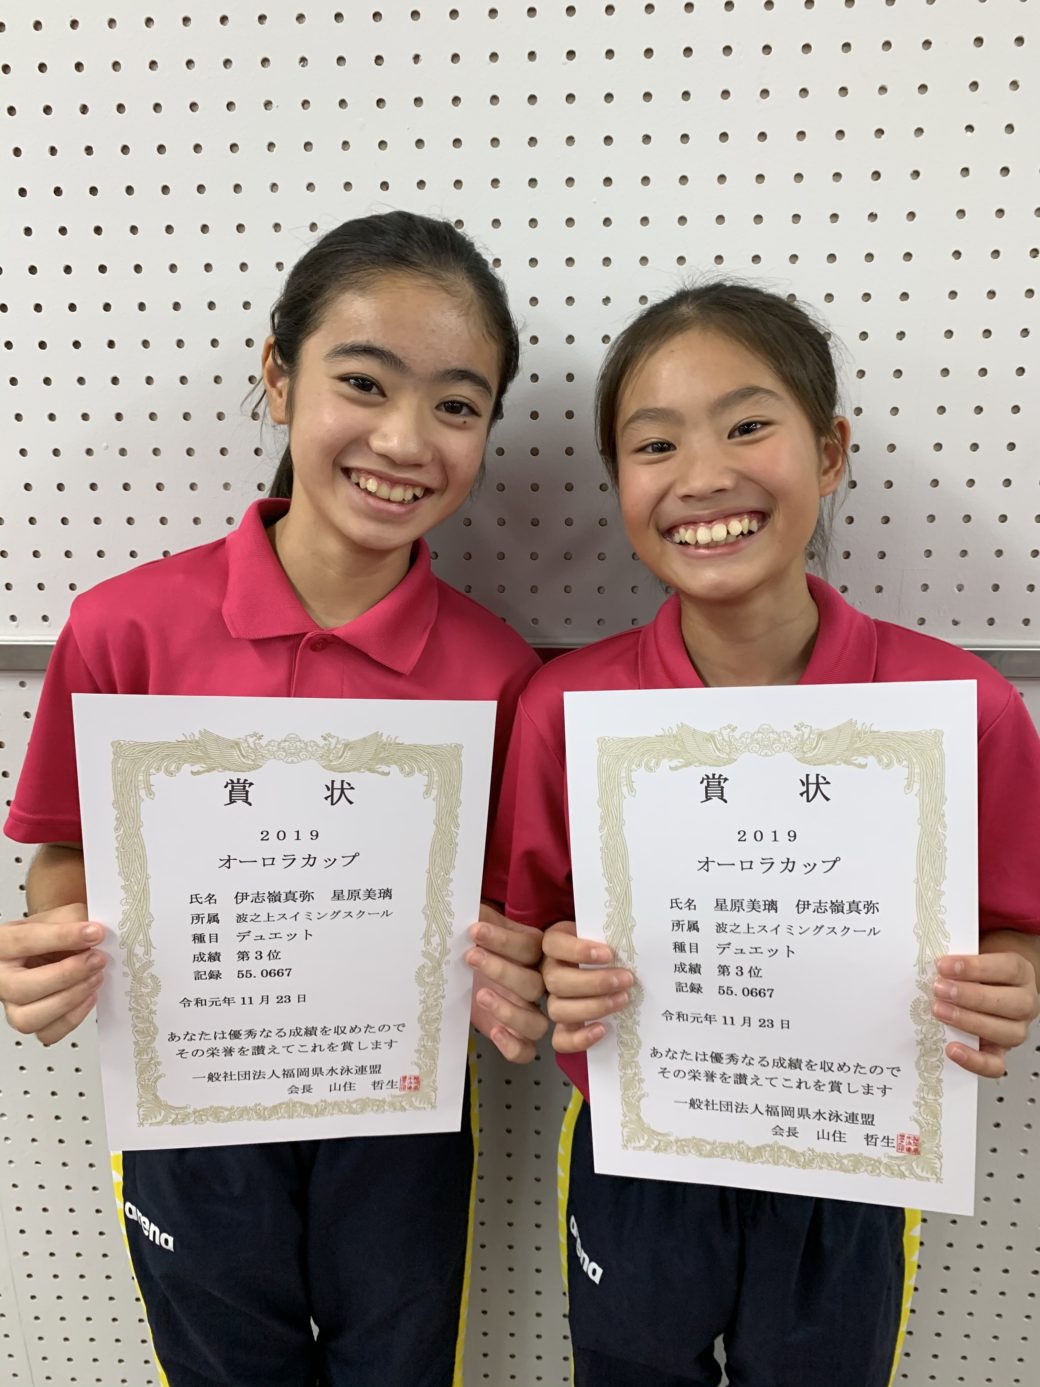 賞 状
2019
オーロラカップ
氏名 伊志嶺真弥 星原美璃
所属 波之上スイミングスクール
種目 デュエット
成績 第3位
記録 55.0667
令和元年11月23日
あなたは優秀なる成績を収めたので
その栄誉を讃えてこれを賞します
一般社団法人福岡県水泳連盟
会長 山住 哲生
賞 状
2019
オーロラカップ
氏名 星原美璃 伊志嶺真弥
所属 波之上スイミングスクール
種目 デュエット
成績 第3位
記録 55.0667
令和元年11月23日
あなたは優秀なる成績を収めたので
その栄誉を讃えてこれを賞します
一般社団法人福岡県水泳連盟
会長 山住 哲生
arena
arena